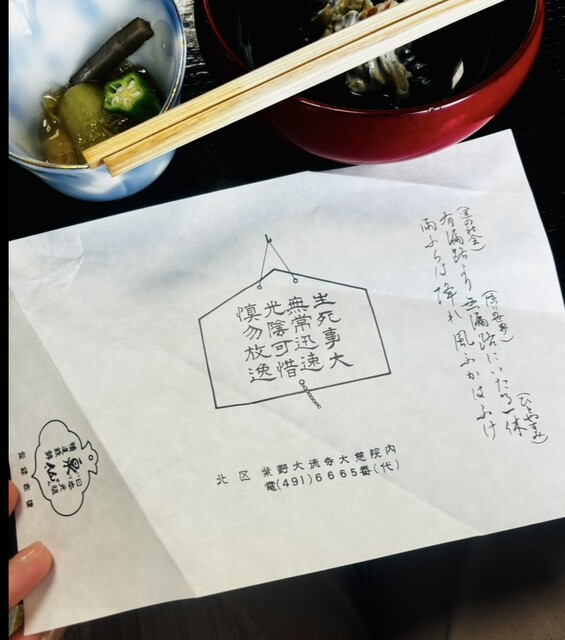 (迷の社会)
有漏路より 無漏路にいたる一休
(ひとやすみ)
雨ふらは降れ 風ふかはふけ
生死事大
無常迅速
光陰可惜
慎勿放逸
北区 紫野大徳寺大慈院内
電(491)6665番(代)
日本元祖
泉仙
精進鉄鉢
登録商標